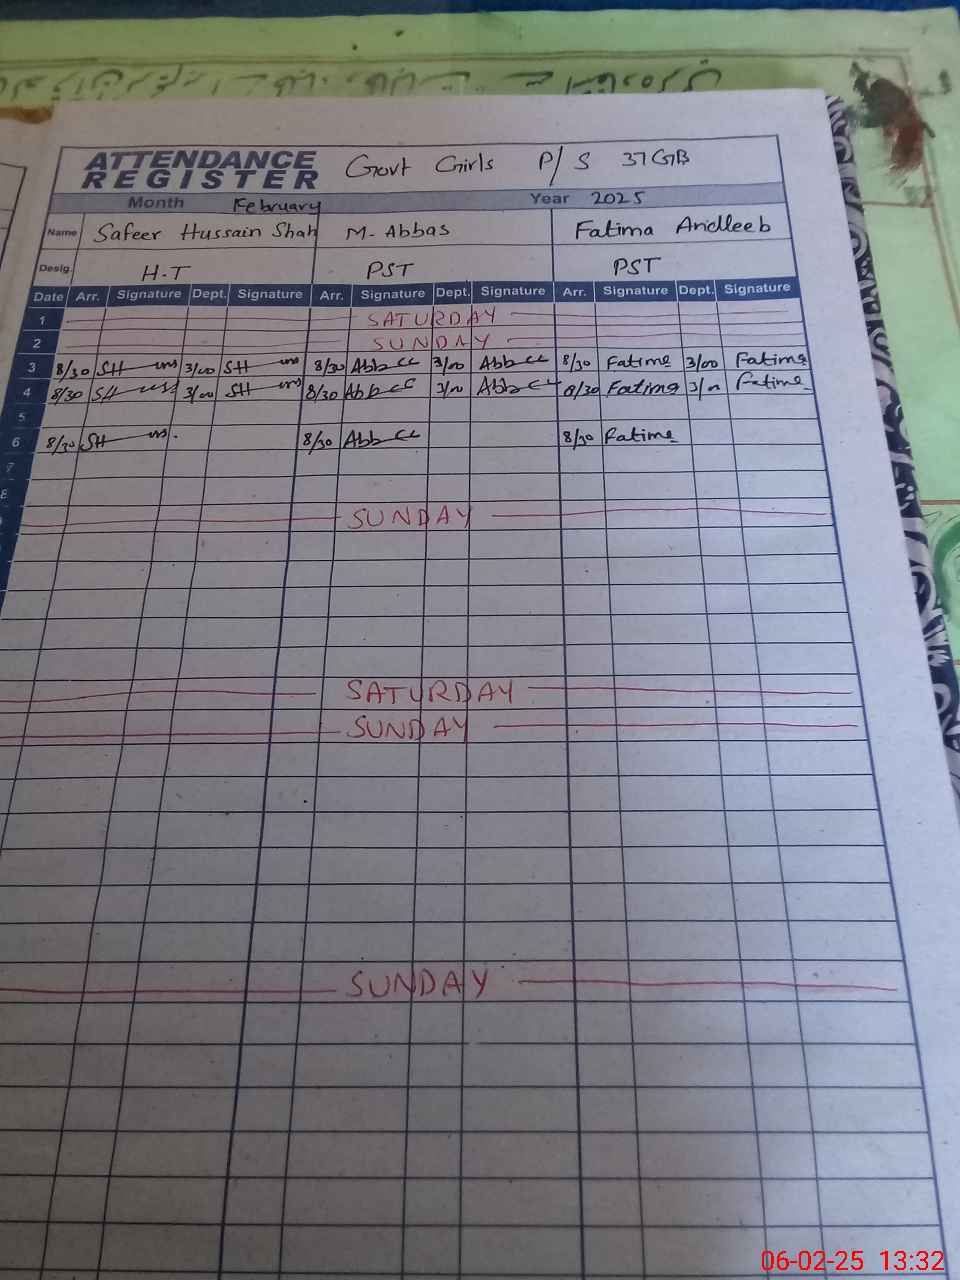 ATTENDANCE REGISTER Govt Girls P/S 37GB
Month February Year 2025
Name Safeer Hussain Shah M. Abbas Fatima Andleeb
Desig. H.T PST PST
Date Arr. Signature Dept. Signature Arr. Signature Dept. Signature Arr. Signature Dept. Signature
1 SATURDAY
2 SUNDAY
3 8/30 SH 3/00 SH 8/30 3/00 8/30 Fatima 3/00 Fatima
4 8/30 SH 3/00 SH 8/30 3/00 8/30 Fatima 3/00 Fatima
5
6 8/30 SH 8/30 8/30 Fatima
7
8
SUNDAY
SATURDAY
SUNDAY
SUNDAY
06-02-25 13:32